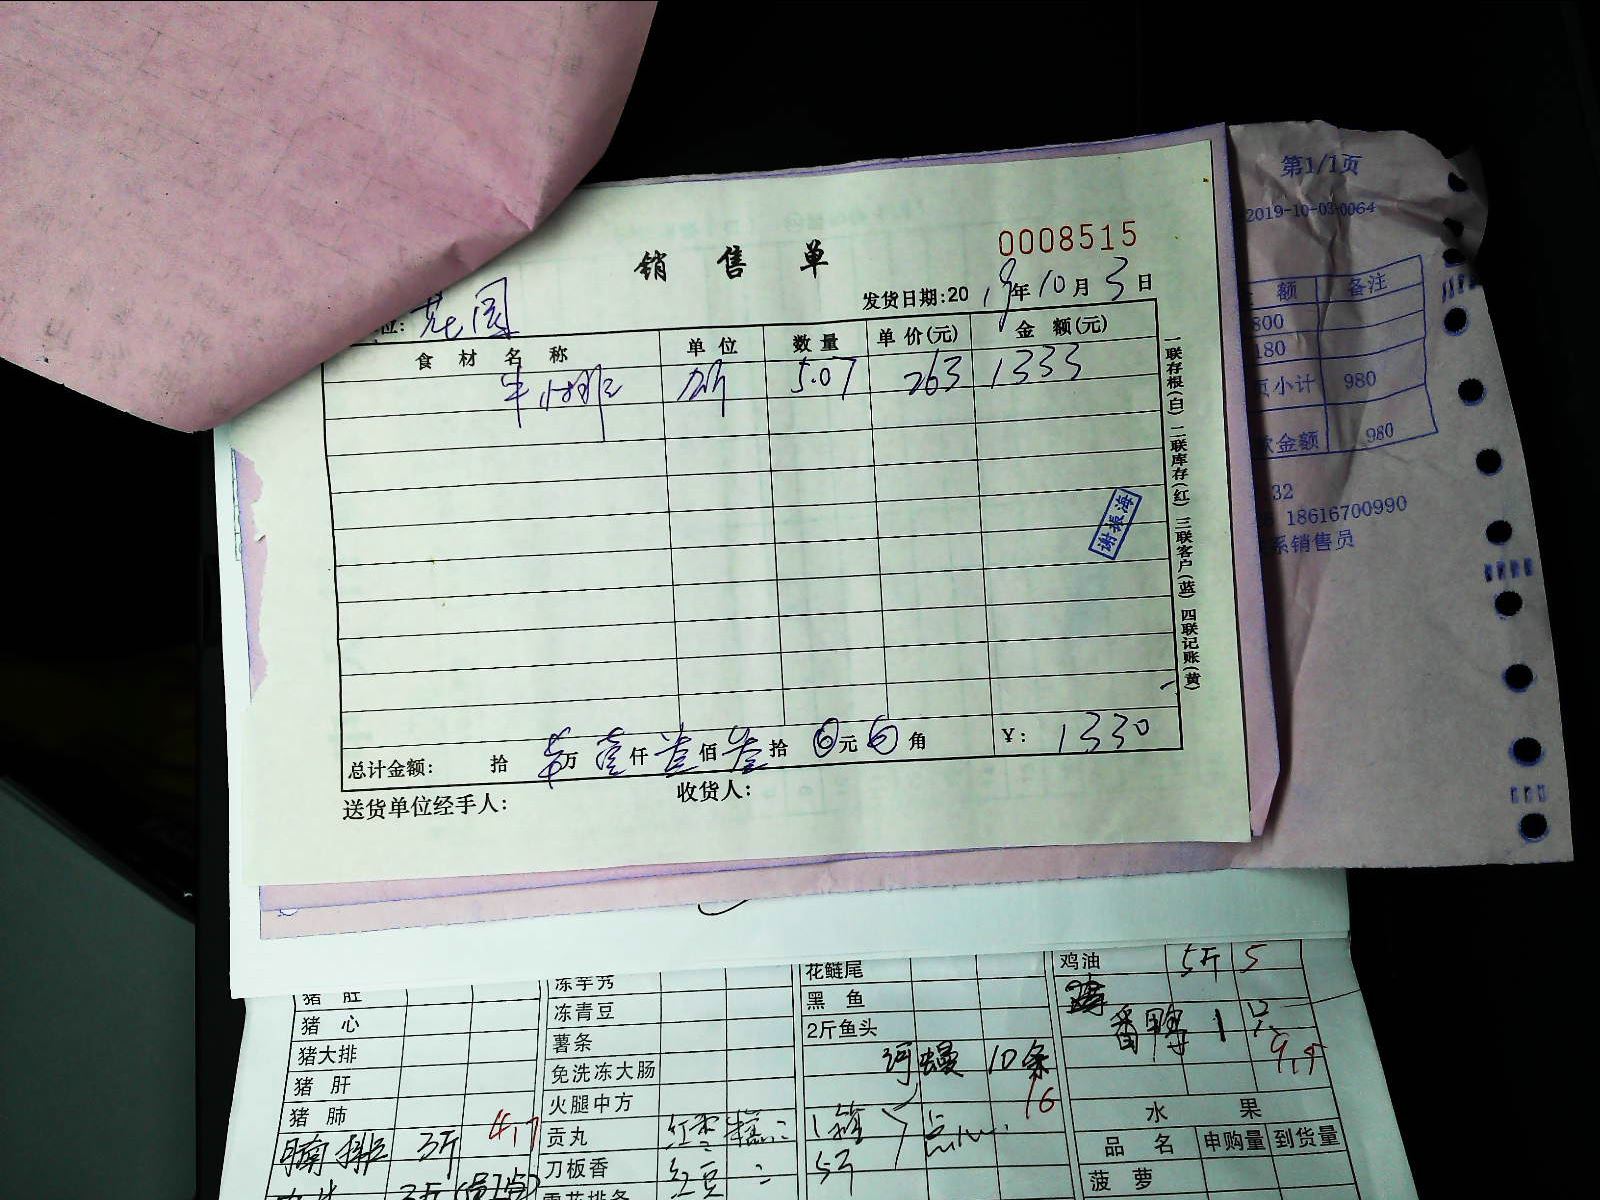 第1/1页
2019-10-03-0064
额 备注
800
180
页小计 980
款金额 980
:32
18616700990
系销售员
销售单
0008515
发货日期:2019年10月3日
位:
食材名称 单位 数量 单价(元) 金额(元)
牛小排 斤 5.07 263 1333
一联存根(白) 二联库存(红) 三联客户(蓝) 四联记账(黄)
谢振海
总计金额: 拾 万 壹仟 叁佰 叁拾 0元 0角 ¥: 1330
送货单位经手人: 收货人:
猪肚
猪心
猪大排
猪肝
猪肺
腩排 3斤
冻青豆
薯条
免洗冻大肠
火腿中方
贡丸 1箱
刀板香 红豆 5斤
花鲢尾
黑鱼
2斤鱼头
河鳗 10条
16
鸡油 5斤 5
番鸭 1
水果
品名 申购量 到货量
菠萝